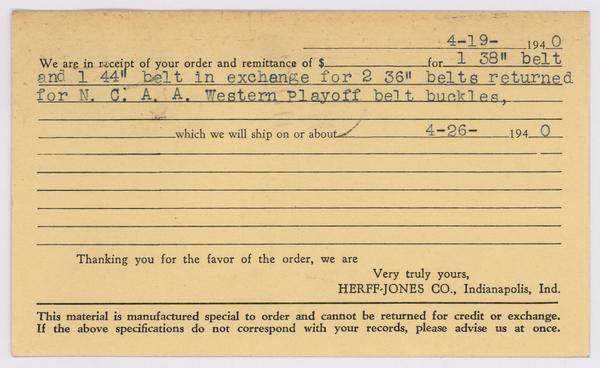 4-19- 1940
We are in receipt of your order and remittance of $ for 1 38" belt
and 1 44" belt in exchange for 2 36" belts returned
for N. C. A. A. Western Playoff belt buckles,
which we will ship on or about 4-26- 1940
Thanking you for the favor of the order, we are
Very truly yours,
HERFF-JONES CO., Indianapolis, Ind.
This material is manufactured special to order and cannot be returned for credit or exchange.
If the above specifications do not correspond with your records, please advise us at once.